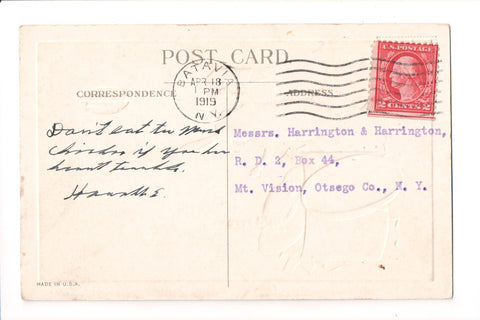 POST CARD
BATAVIA
APR 18
1 PM
1919
N.Y.
U.S. POSTAGE
2 CENTS 2
CORRESPONDENCE
ADDRESS
Don't eat too much
chicken if you
hunt
Messrs. Harrington & Harrington,
R. D. 2, Box 44,
Mt. Vision, Otsego Co., N. Y.
MADE IN U.S.A.